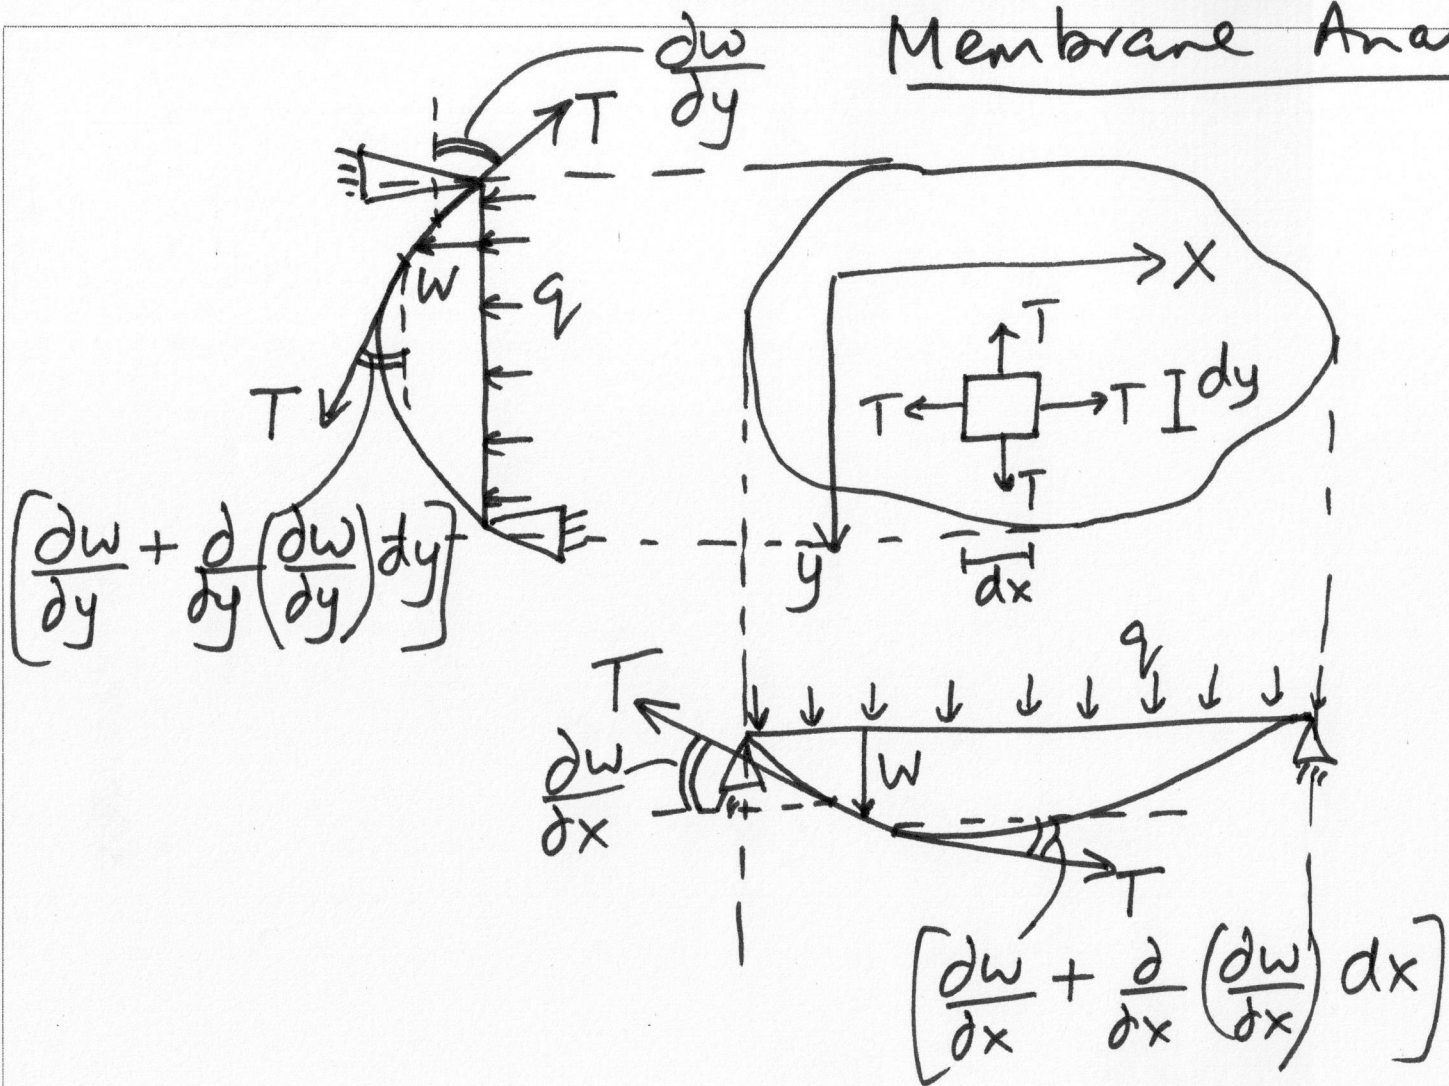 Membrane Ana
∂w/∂y
T
w
q
T
[∂w/∂y + ∂/∂y (∂w/∂y) dy]
X
T
T
T
dy
T
y
dx
q
T
∂w/∂x
w
T
[∂w/∂x + ∂/∂x (∂w/∂x) dx]